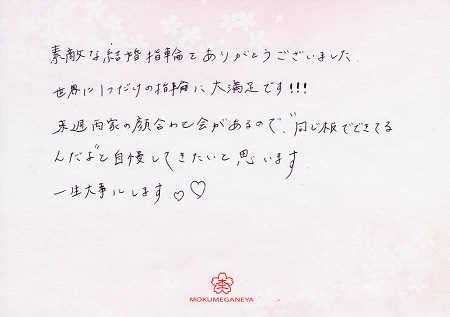 素敵な結婚指輪をありがとうございました。
世界に1つだけの指輪に大満足です!!!
来週両家の顔合わせ会があるので、"同じ板でできてる
んだよ"と自慢してきたいと思います。
一生大事にします♡♡
MOKUMEGANEYA